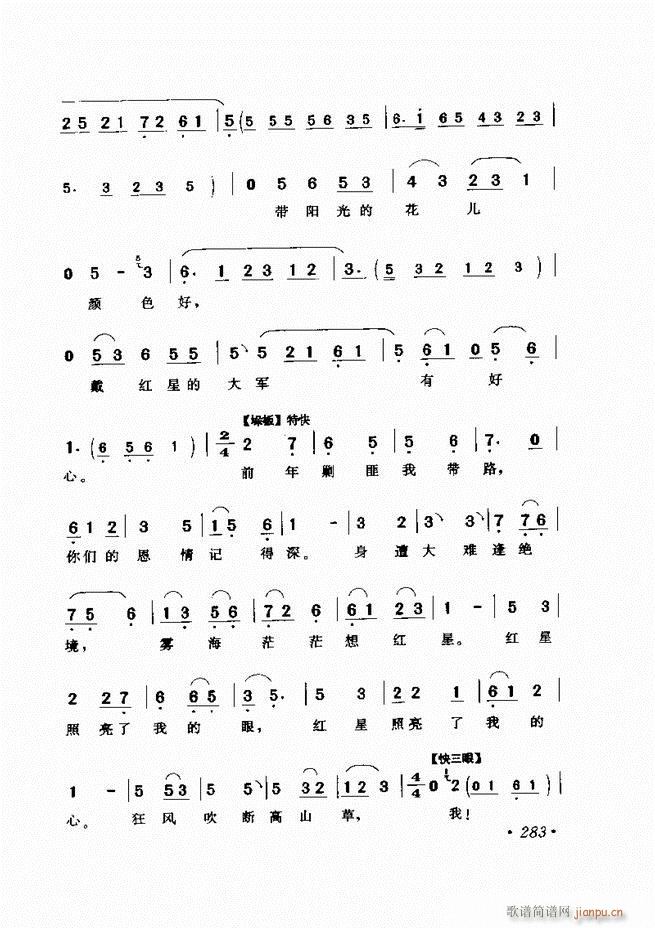 25 21 72 61 | 5 (5 55 56 35 | 6. i 65 43 23 |
5. 3 23 5 ) | 0 56 53 | 4 3 23 1 |
带阳光的花儿
0 5 - 3 | 6. 1 23 12 | 3. (5 32 12 3 |
颜色好，
0 53 6 55 | 5 5 21 61 | 5 61 05 6 |
戴红星的大军有好
【垛板】特快
1. (6 56 1 ) | 2/4 2 7 | 6 5 | 5 6 | 7. 0 |
心。前年剿匪我带路，
61 2 | 3 5 | 15 6 | 1 - | 3 2 | 3 3 | 7 76 |
你们的恩情记得深。身遭大难逢绝
75 6 | 13 56 | 72 6 | 61 23 | 1 - | 5 3 |
境，雾海茫茫想红星。红星
2 27 | 6 65 | 3 5. | 5 3 | 22 1 | 61 2 |
照亮了我的眼，红星照亮了我的
【快三眼】
1 - | 5 53 | 5 5 | 3 32 | 12 3 | 4/4 0 2 (01 61 ) |
心。狂风吹断高山草，我！
·283·
歌谱简谱网 jianpu.cn